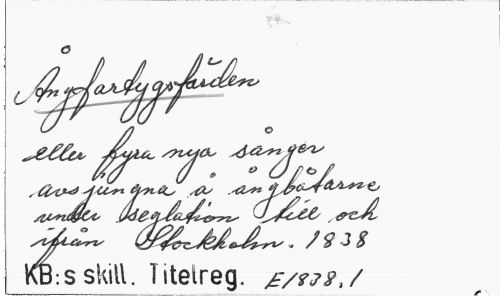 Ångfartygsfärden
eller fyra nya sånger
avsjungna å ångbåtarne
under seglation till och
ifrån Stockholm. 1838
KB:s skill. Titelreg. E1838,1